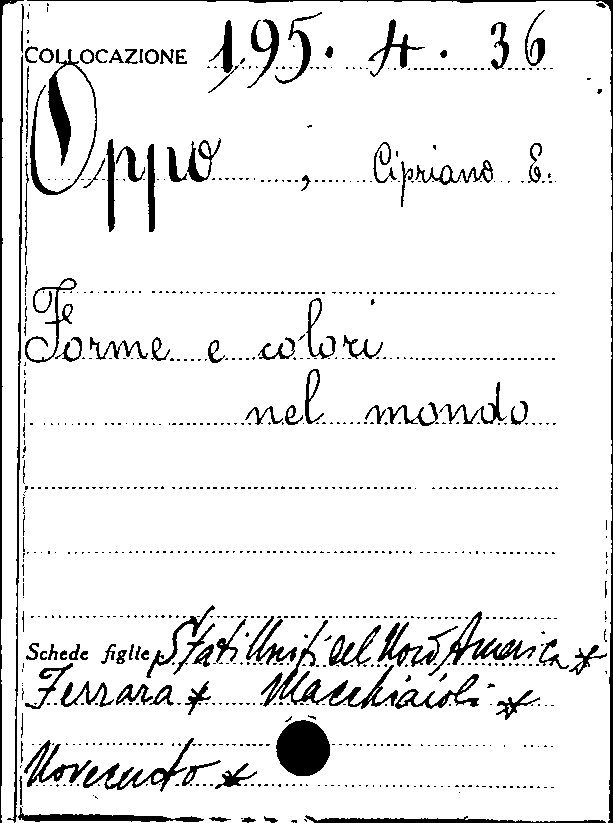 COLLOCAZIONE 195. 4. 36
Oppo, Cipriano E.
Forme e colori
nel mondo
Schede figlie Stati Uniti del Nord America *
Ferrara * Macchiaioli *
Novecento *